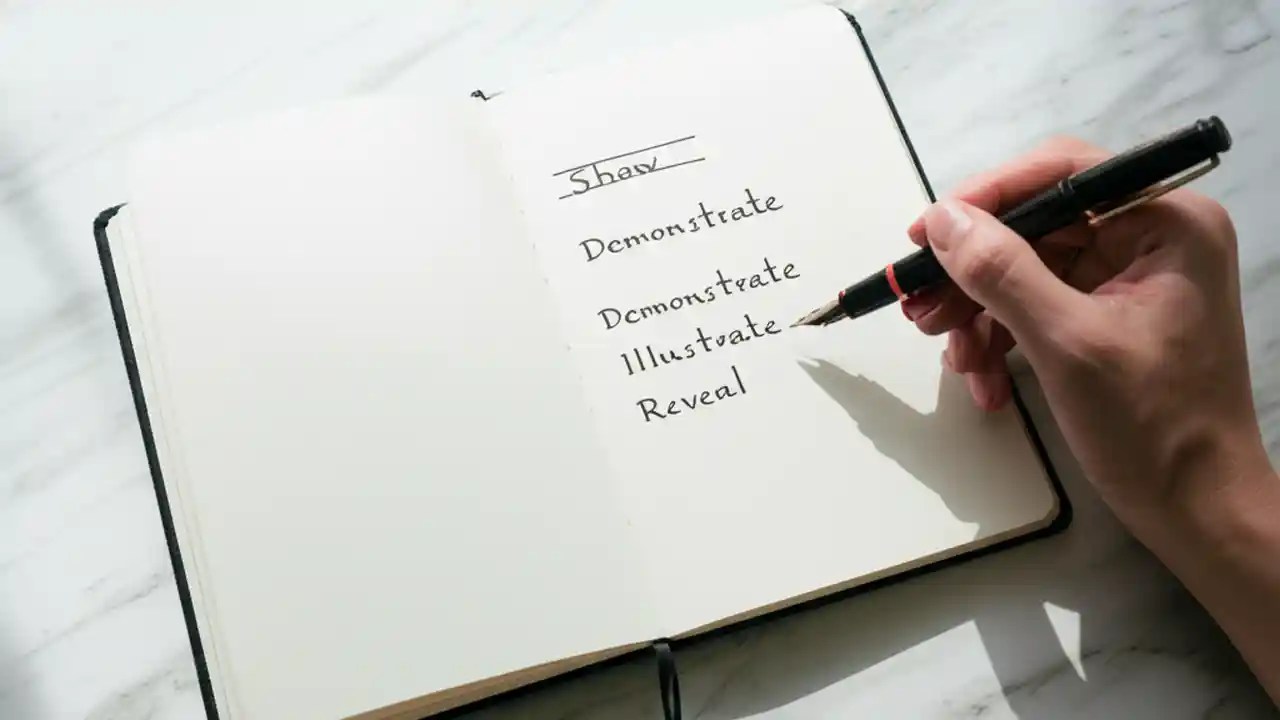 Show
Demonstrate
Demonstrate
Illustrate
Reveal